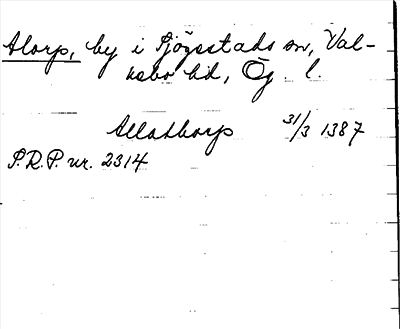 Alorp, by i Sjögestads sn, Val-
kebo hd, Ög. l.
Allathorp 31/3 1387
S.R.P. nr. 2314